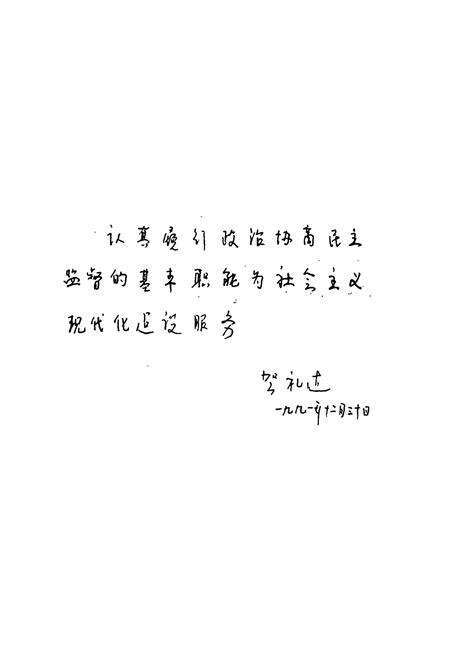 认真履行政治协商民主
监督的基本职能为社会主义
现代化建设服务
贺礼达
一九九一年十二月三十日